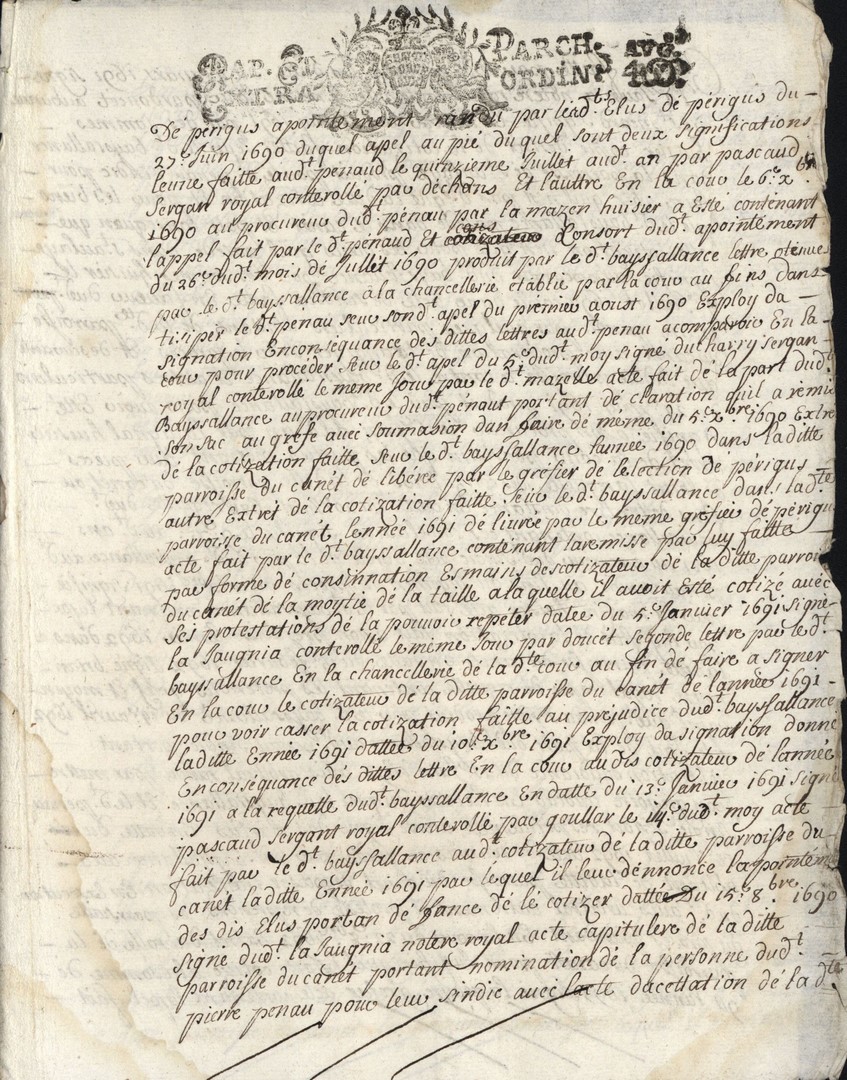 PAP. ET PARCH. AVG.
EXTRA ORDIN.
De périgus apointement randu par lesd.ts Elus dé périgus du
27.e Juin 1690 duquel apel au pié duquel sont deux significations
leune faitte aud.t penaud le quinziéme Juillet aud.t an par pascaud
Sergan royal conterollé par déchans Et lauttre En la cour le 6.e x.
1690 au procureur dud.t pénau par la mazen huisier a Este contenant
lappel fait par le d.t pénaud Et cons Consort dud.t apointément
du 26.e dud.t mois dé Juillet 1690 produit par le d.t bayssallance lettre oténues
par le d.t bayssallance à la chancellerie établie par la cour au fins dans
tisiper le d.t pénau seur sond.t apel du prémier aoust 1690 Exploy da
signation En conséquance des dittes lettres aud.t penau acomparoir En la
cour pour procéder seur le d.t apel du 5.e dud.t moy signé ducharry sergan
royal conterollé le meme Jour par le d.t mazelle acte fait de la part dud.t
Bayssallance au procureur dud.t pénaut portant dé claration quil a remis
son sac au gréfe avec soumasion dan faire dé mémé du 5.e x.bre 1690 Extre
dé la cotization faitte seur le d.t bayssallance lannée 1690 dans laditte
parroisse du canét dé libérée par le gréfier dé lélection dé périgus
autre Extret dé la cotization faitte seur le d.t bayssallance dans lad.te
parroisse du canét lennée 1691 dé livré par le meme gréfier dé périgu
acte fait par le d.t bayssallance conténant laremisse par luy faitte
par forme dé consinnation Es mains des cotizateur dé la ditte parroi
du canét dé la moytié dé la taille a laquelle il avoit Esté cotizé avéc
ses protestations dé la pouvoir repéter datée du 5.e Janvier 1691 signé
la Jaugnia conterollé le méme Jour par doucét segonde lettre par le d.t
bayssallance En la chancellerie dé la d.te cour au fin dé faire a signer
En la cour le cotizateur dé la ditte parroisse du canét dé lannéé 1691
pour voir casser la cotization faitte au préjudice dud.t bayssallance
laditte Ennéé 1691 dattée du 10.e x.bre 1691 Exploy da signation donné
En conséquance dés dittes lettre En la cour audis cotizateur dé lannéé
1691 a la requette dud.t bayssallance En datte du 13.e Janvier 1691 signé
pascaud Sergant royal conterollé par goullar le 14.e dud.t moy acte
fait par le d.t bayssallance aud.t cotizateur dé la ditte parroisse du
canét laditte Ennéé 1691 par léquel il leur dénnonce lapointéme
des dis Elus portan dé fance dé lé cotizer dattéé Du 15.e 8.bre 1690
signé dud.t la Jaugnia notere royal acte capitulere dé la ditte
parroisse du canét portant nomination dé la personne dud.t
pierre penau pour leur sindic avéc lacte dacettation dé la d.te